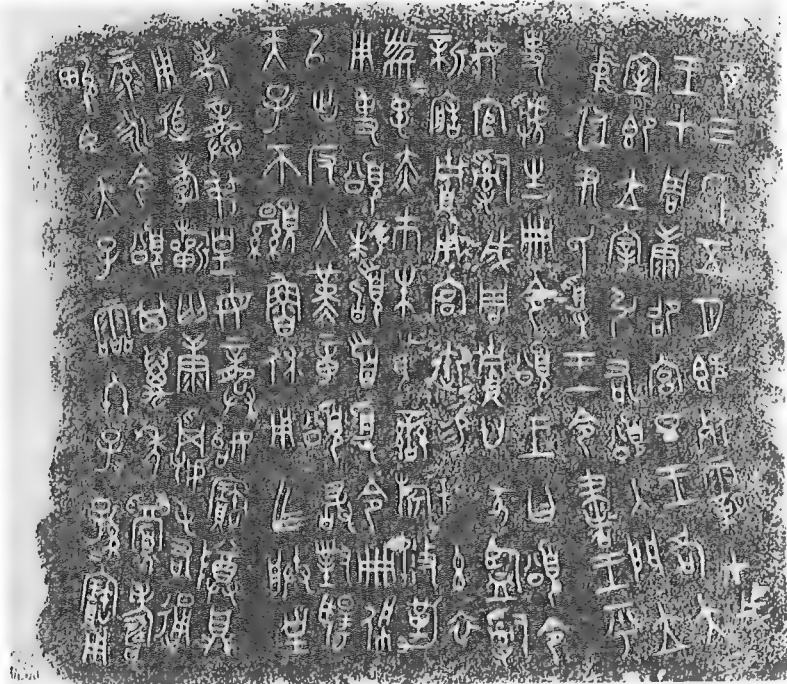 隹三年五月既死霸甲戌
王才周康卲宮旦王各大
室即立宰引右頌入門立
中廷尹氏受王令書王乎
史虢生冊令頌王曰頌令
女官𤔲成周貯廿家監𤔲
新造貯用宮御易女玄衣
黹屯赤巿朱黃鑾旂攸勒
用事頌拜稽首受令冊佩
以出反入堇章頌敢對揚
天子不顯魯休用乍朕皇
考龔叔皇母龔始寶尊鼎
用追孝祈匄康𩁹屯右通
彔永令頌其萬年眉壽
畯臣天子霝冬子孫寶用